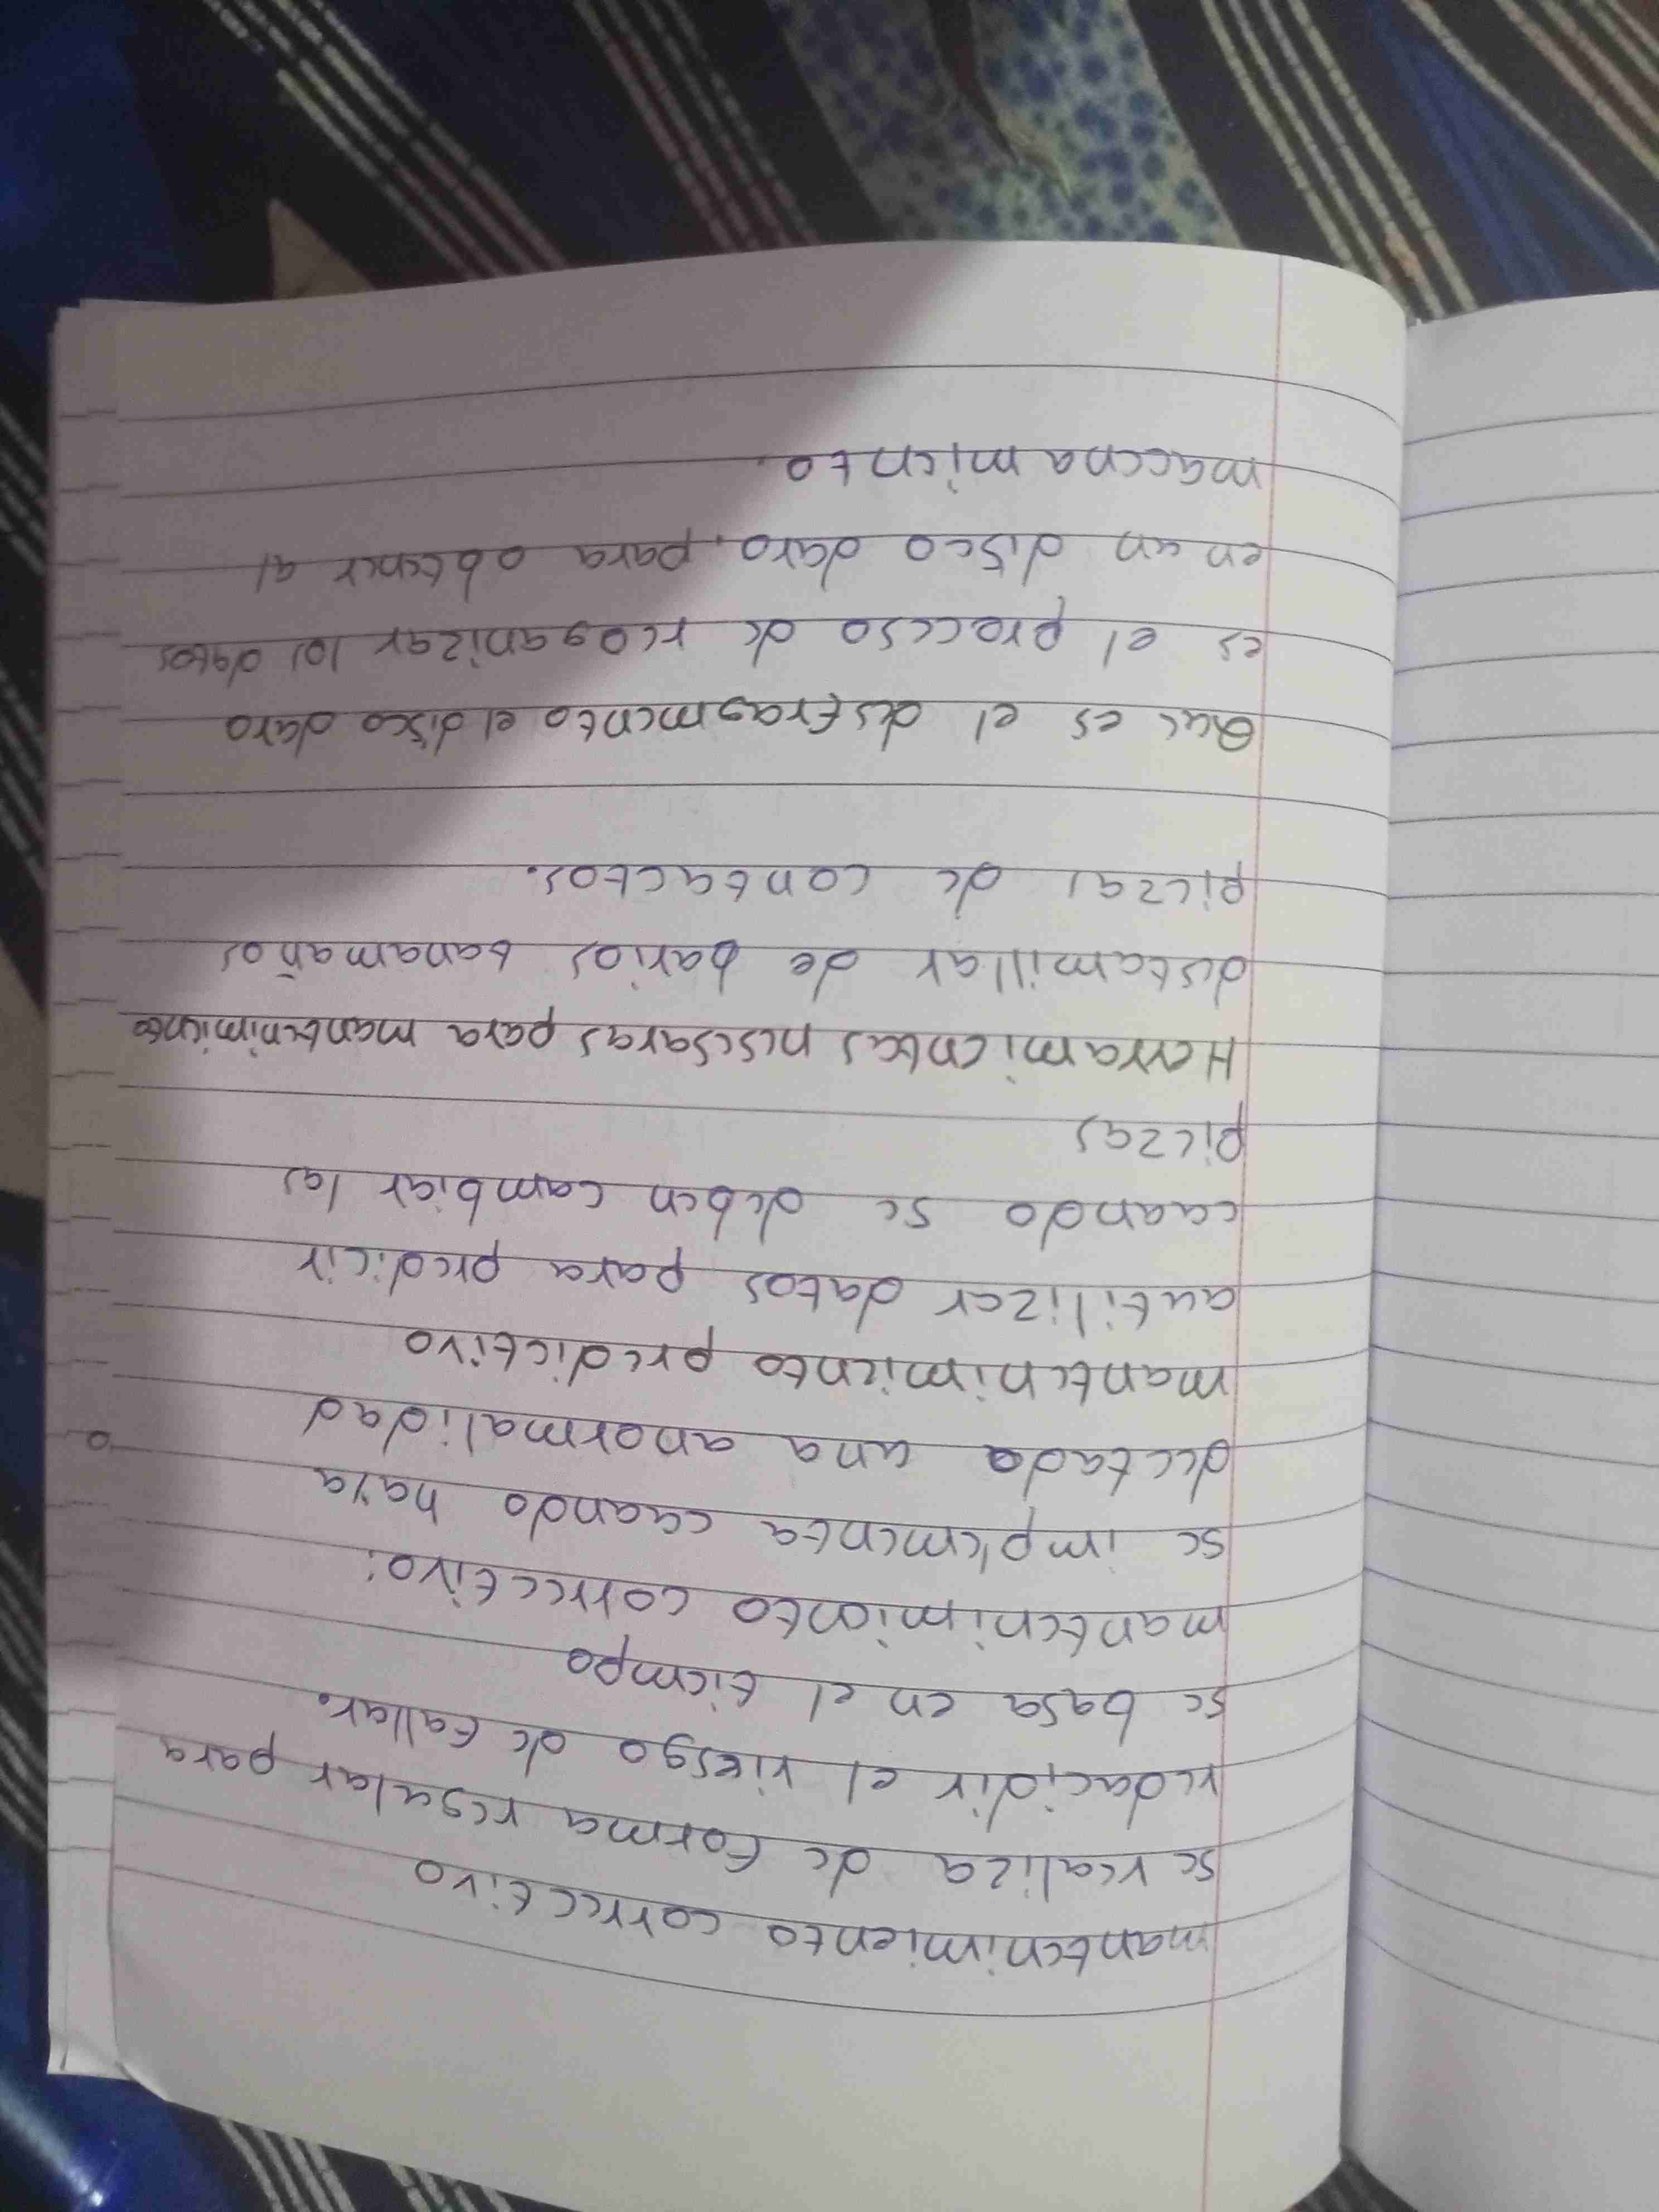 mantenimiento correctivo
se realiza de forma regular para
redacidir el riesgo de fallar.
se basa en el tiempo
mantenimionto correctivo:
se implementa cuando haya
dectado una anormalidad
mantenimiento predictivo
autilizar datos para predicir
cuando se deben cambiar las
piezas
Herramientas nescsaras para mantenimiento
destamillar de barios tanamaños
piezas de contactos.
Que es el desfragmento el disco duro
es el proceso de reoganizar los datos
en un disco duro. para obtener al
macenamiento.